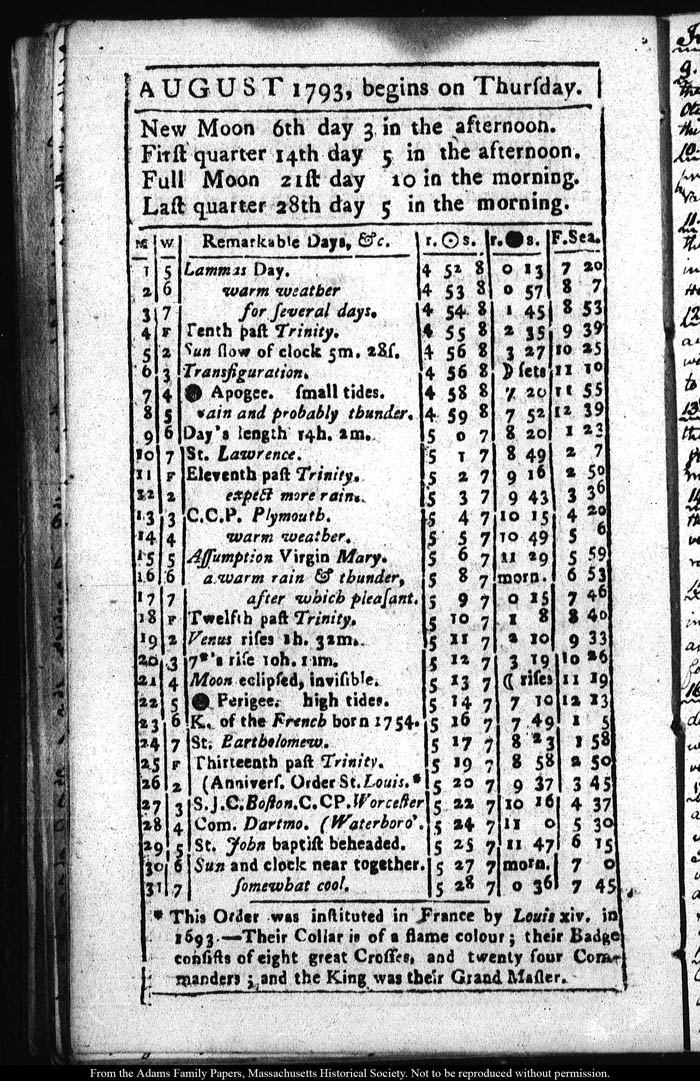 AUGUST 1793, begins on Thurſday.
New Moon 6th day 3 in the afternoon.
Firſt quarter 14th day 5 in the afternoon.
Full Moon 21ſt day 10 in the morning.
Laſt quarter 28th day 5 in the morning.
M W Remarkable Days, &c. r. ☉ s. r. ● s. F. Sea.
1 5 Lammas Day. 4 52 8 0 13 7 20
2 6 warm weather 4 53 8 0 57 8 7
3 7 for ſeveral days. 4 54 8 1 45 8 53
4 F Tenth paſt Trinity. 4 55 8 2 35 9 39
5 2 Sun ſlow of clock 5m. 28ſ. 4 56 8 3 27 10 25
6 3 Transfiguration. 4 56 8 ☽ ſets 11 10
7 4 ● Apogee. ſmall tides. 4 58 8 7 20 11 55
8 5 rain and probably thunder. 4 59 8 7 52 12 39
9 6 Day's length 14h. 2m. 5 0 7 8 20 1 23
10 7 St. Lawrence. 5 1 7 8 49 2 7
11 F Eleventh paſt Trinity. 5 2 7 9 16 2 50
12 2 expect more rain. 5 3 7 9 43 3 36
13 3 C.C.P. Plymouth. 5 4 7 10 15 4 20
14 4 warm weather. 5 5 7 10 49 5 6
15 5 Aſſumption Virgin Mary. 5 6 7 11 29 5 59
16 6 a warm rain & thunder, 5 8 7 morn. 6 53
17 7 after which pleaſant. 5 9 7 0 15 7 46
18 F Twelfth paſt Trinity. 5 10 7 1 8 8 40
19 2 Venus riſes 1h. 32m. 5 11 7 2 10 9 33
20 3 7*'s riſe 10h. 11m. 5 12 7 3 19 10 26
21 4 Moon eclipſed, inviſible. 5 13 7 ☾ riſes 11 19
22 5 ● Perigee. high tides. 5 14 7 7 10 12 13
23 6 K. of the French born 1754. 5 16 7 7 49 1 5
24 7 St. Bartholomew. 5 17 7 8 23 1 58
25 F Thirteenth paſt Trinity. 5 19 7 8 58 2 50
26 2 (Anniverſ. Order St. Louis.* 5 20 7 9 37 3 45
27 3 S.J.C. Boſton. C.CP. Worceſter 5 22 7 10 16 4 37
28 4 Com. Dartmo. (Waterboro'. 5 24 7 11 0 5 30
29 5 St. John baptiſt beheaded. 5 25 7 11 47 6 15
30 6 Sun and clock near together. 5 27 7 morn. 7 0
31 7 ſomewhat cool. 5 28 7 0 36 7 45
* This Order was inſtituted in France by Louis xiv. in
1693.—Their Collar is of a flame colour; their Badge
conſiſts of eight great Croſſes, and twenty four Com-
manders; and the King was their Grand Maſter.
From the Adams Family Papers, Massachusetts Historical Society. Not to be reproduced without permission.